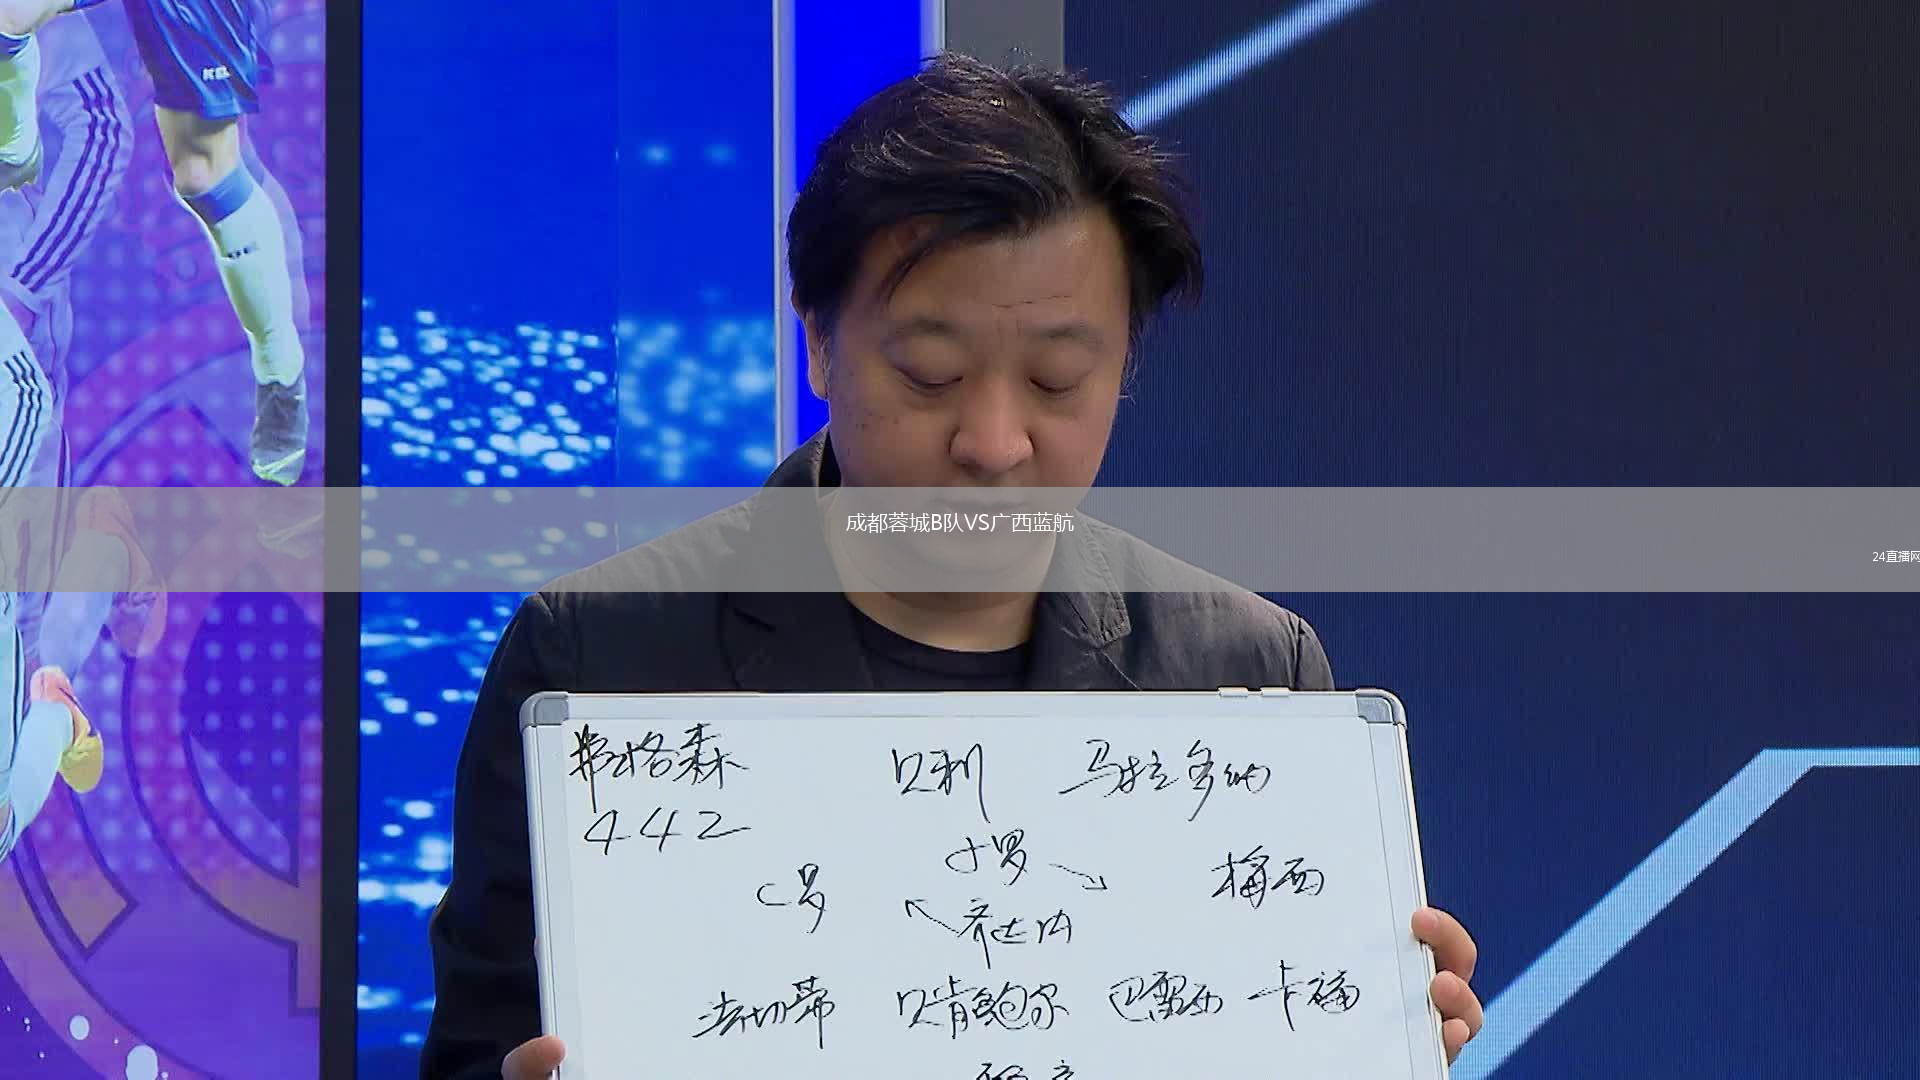 成都蓉城B队VS广西蓝航
24直播网
弗格森 贝利 马拉多纳
442
小罗
C罗 梅西
齐达内
法切蒂 贝肯鲍尔 巴雷西 卡福